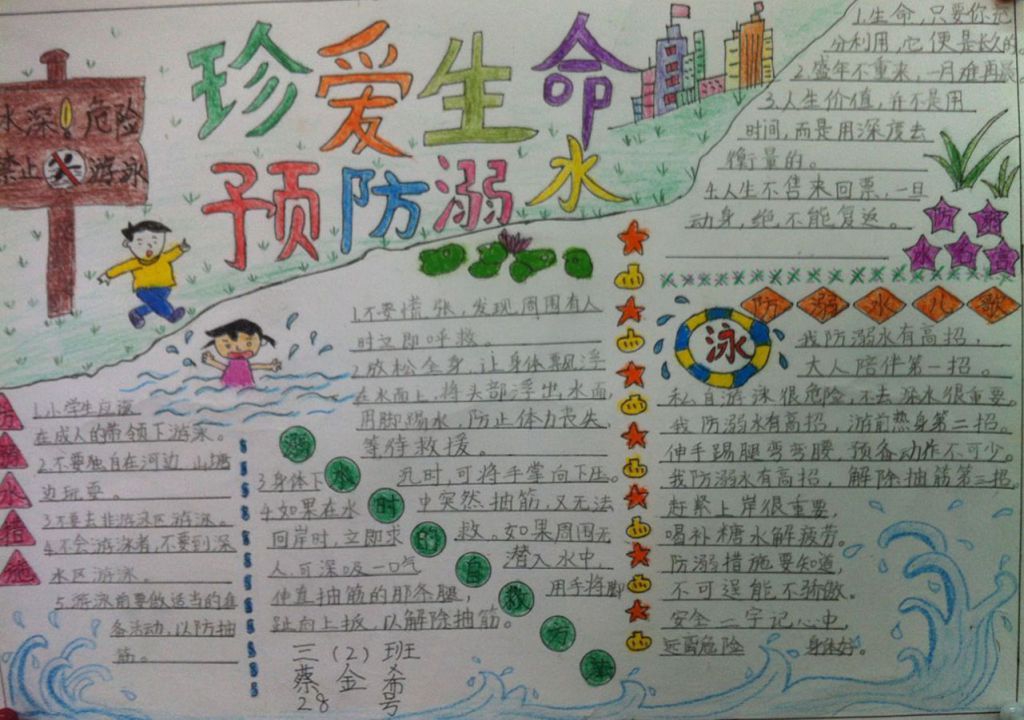 珍爱生命
预防溺水
水深！危险
禁止游泳
1.生命,只要你充
分利用,它便是长久的
2.盛年不重来,一日难再晨
3.人生价值,并不是用
时间,而是用深度去
衡量的。
4.人生不售来回票,一旦
动身,绝不能复返。
防溺水儿歌
泳
我防溺水有高招,
大人陪伴第一招。
私自游泳很危险,不去深水很重要。
我防溺水有高招,游前热身第二招。
伸手踢腿弯弯腰,预备动作不可少。
我防溺水有高招,解除抽筋第三招。
赶紧上岸很重要,
喝补糖水解疲劳。
防溺措施要知道,
不可逞能不骄傲。
安全二字记心中,
远离危险 身体好。
溺水时的自救方法
1.不要慌张,发现周围有人
时立即呼救。
2.放松全身,让身体飘浮
在水面上,将头部浮出水面,
用脚踢水,防止体力丧失,
等待救援。
3.身体下沉时,可将手掌向下压。
4.如果在水中突然抽筋,又无法
回岸时,立即求救。如果周围无
人,可深吸一口气潜入水中,
伸直抽筋的那条腿,用手将脚
趾向上扳,以解除抽筋。
防溺水措施
1.小学生应该
在成人的带领下游泳。
2.不要独自在河边、山塘
边玩耍。
3.不要去非游泳区游泳。
4.不会游泳者,不要到深
水区游泳。
5.游泳前要做适当的准
备活动,以防抽
筋。
三(2)班
蔡金希
28号